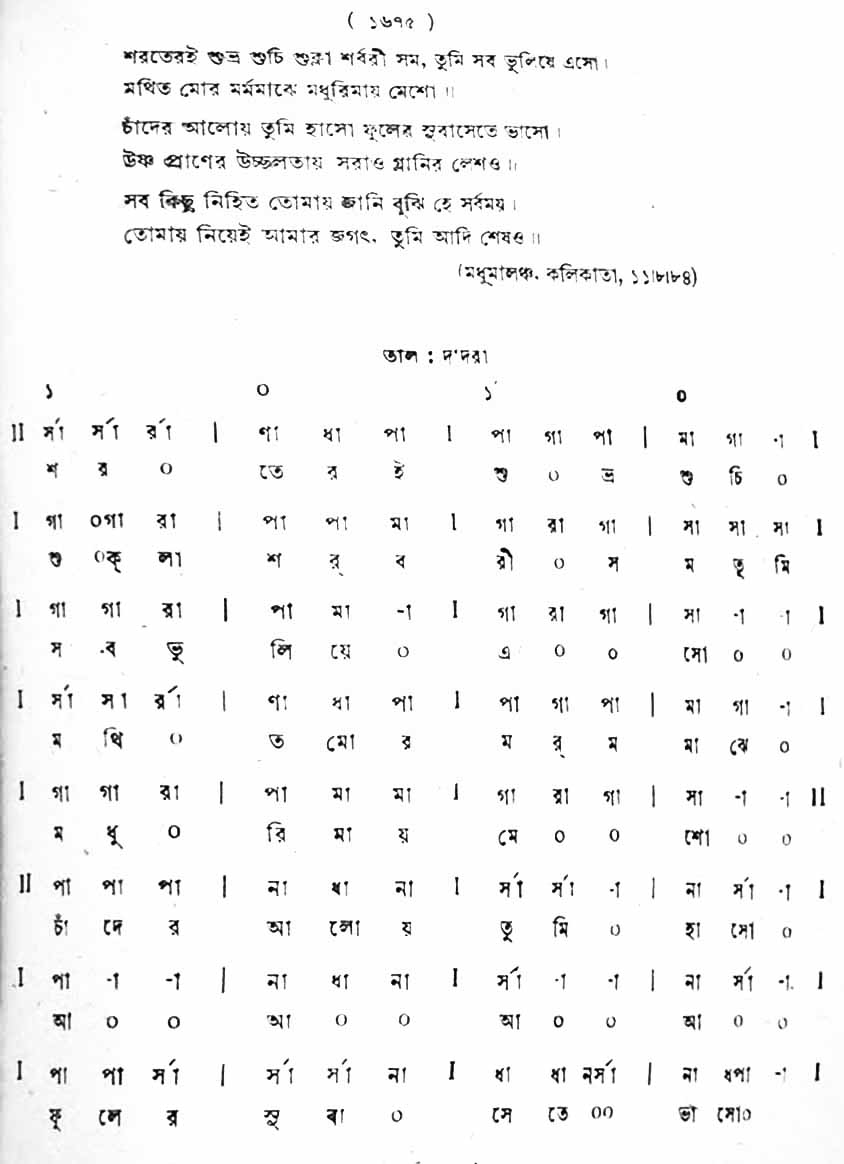 ( ১৬৭৫ )
শরতেরই শুভ্র শুচি শুক্লা শর্বরী সম, তুমি সব ভুলিয়ে এসো।
মথিত মোর মর্মমাঝে মধুরিমায় মেশো॥
চাঁদের আলোয় তুমি হাসো ফুলের সুবাসেতে ভাসো।
উষ্ণ প্রাণের উচ্ছলতায় সরাও গ্লানির লেশও॥
সব কিছু নিহিত তোমায় জানি বুঝি হে সর্বময়।
তোমায় নিয়েই আমার জগৎ, তুমি আদি শেষও॥
(মধুমালঞ্চ, কলিকাতা, ১১।৮।৮৪)
তাল : দ'দরা
১ ০ ১´ ০
II র্সা র্সা র্রা | ণা ধা পা I পা গা পা | মা গা -া I
শ র ০ তে র ই শু ০ ভ্র শু চি ০
I গা ০গা রা | পা পা মা I গা রা গা | সা সা সা I
শু ০ক্ লা শ র্ ব রী ০ স ম তু মি
I গা গা রা | পা মা -া I গা রা গা | সা -া -া I
স ব ভু লি য়ে ০ এ ০ ০ সো ০ ০
I র্সা সা র্রা | ণা ধা পা I পা গা পা | মা গা -া I
ম থি ০ ত মো র ম র্ ম মা ঝে ০
I গা গা রা | পা মা মা I গা রা গা | সা -া -া II
ম ধু ০ রি মা য় মে ০ ০ শো ০ ০
II পা পা পা | না ধা না I র্সা র্সা -া | না র্সা -া I
চাঁ দে র আ লো য় তু মি ০ হা সো ০
I পা -া -া | না ধা না I র্সা -া -া | না র্সা -া I
আ ০ ০ আ ০ ০ আ ০ ০ আ ০ ০
I পা পা র্সা | র্সা র্সা না I ধা ধা নর্সা | না ধপা -া I
ফু লে র সু বা ০ সে তে ০০ ভা সো০